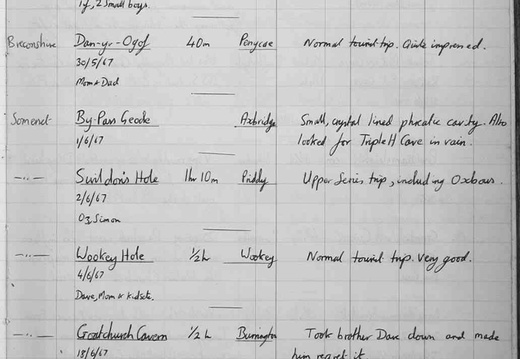 1f, 2 small boys.
Breconshire Dan-yr-Ogof 40m Penycae Normal tourist trip. Quite impressed.
30/5/67
Mom & Dad
Somerset By-Pass Geode Axbridge Small, crystal lined phreatic cavity. Also
1/6/67 looked for Triple H Cave in vain.
-"- Swildon's Hole 1hr 10m Priddy Upper Series trip, including Oxbows.
2/6/67
Oz, Simon
-"- Wookey Hole ½h Wookey Normal tourist trip. Very good.
4/6/67
Dave, Mom & Kidsets.
-"- Goatchurch Cavern ½h Burrington Took brother Dave down and made
18/6/67 him regret it.